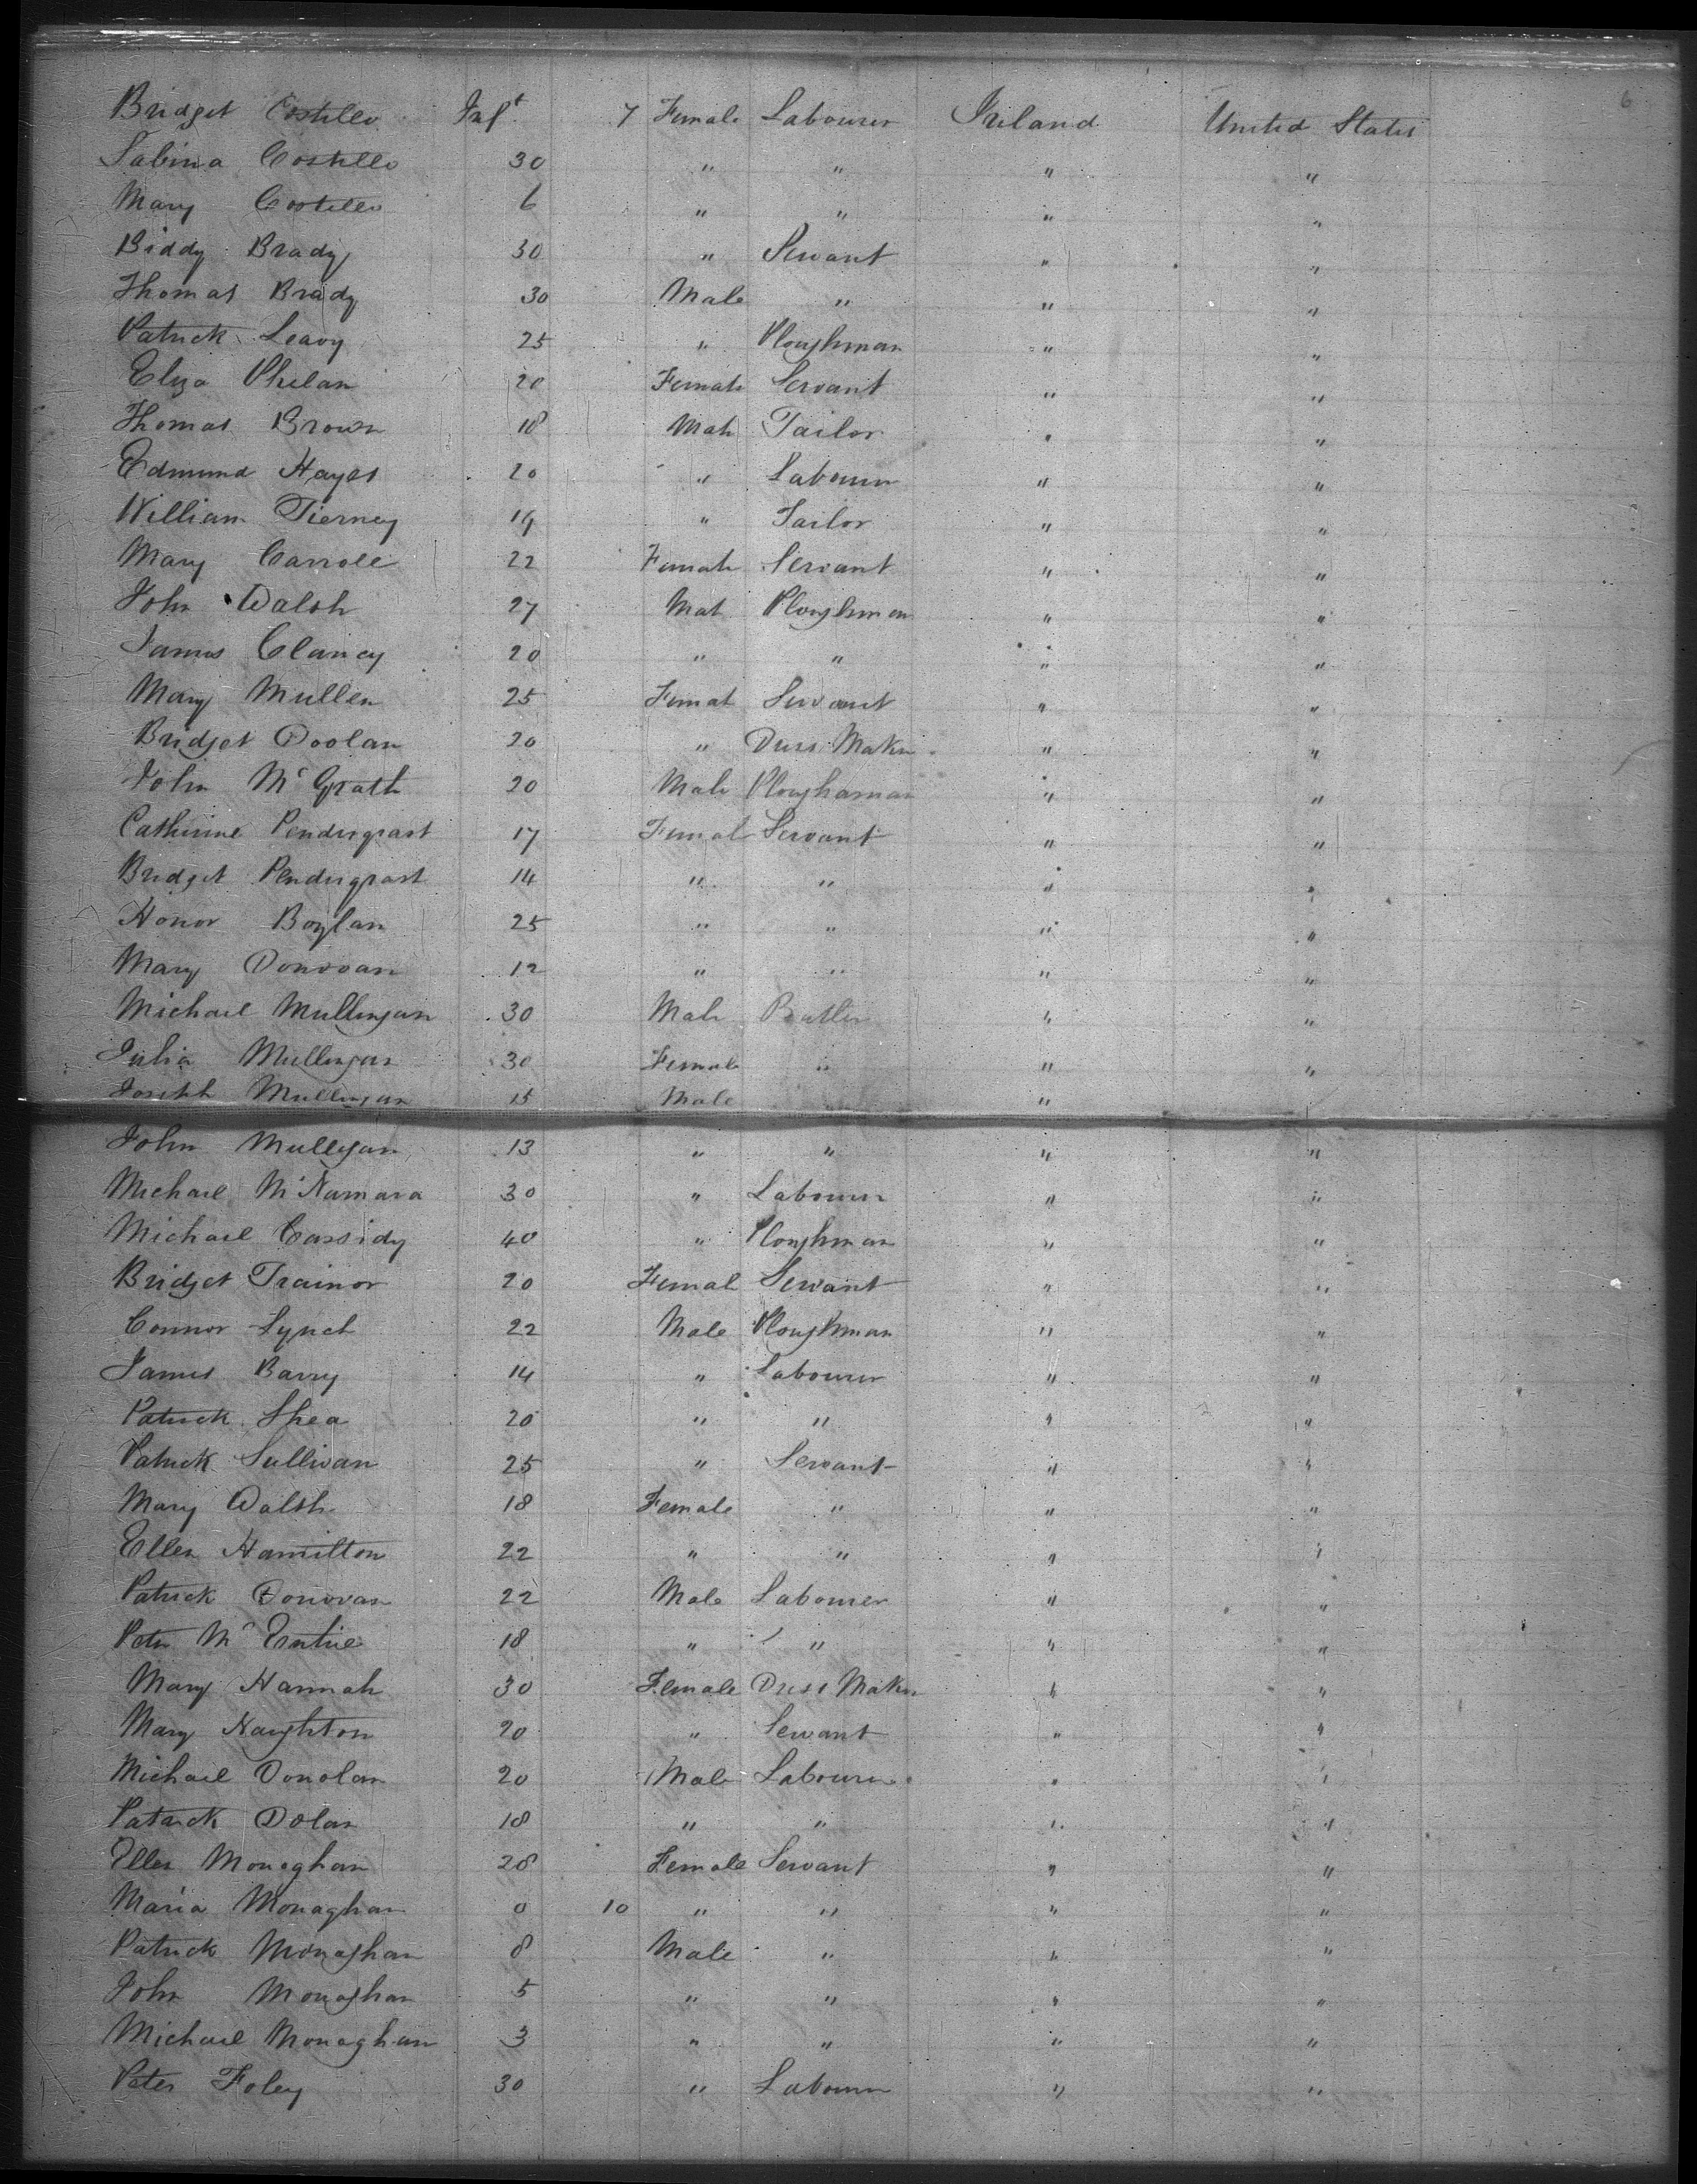 6
Bridget Costello Inft 7 Female Labourer Ireland United States
Sabina Costello 30 " " " "
Mary Costello 6 " " " "
Biddy Brady 30 " Servant " "
Thomas Brady 30 Male " " "
Patrick Leavy 25 " Ploughman " "
Eliza Phelan 20 Female Servant " "
Thomas Brown 18 Male Tailor " "
Edmund Hayes 20 " Labourer " "
William Tierney 19 " Tailor " "
Mary Carroll 22 Female Servant " "
John Walsh 27 Male Ploughman " "
James Clancy 20 " " " "
Mary Mullen 25 Female Servant " "
Bridget Doolan 20 " Dress Maker " "
John McGrath 20 Male Ploughaman " "
Catherine Pendergrast 17 Female Servant " "
Bridget Pendergrast 14 " " " "
Honor Boylan 25 " " " "
Mary Donovan 12 " " " "
Michael Mullingan 30 Male Butler " "
Julia Mullingan 30 Female " " "
Joseph Mullingan 15 Male "
John Mulligan 13 " " " "
Michael McNamara 30 " Labourer " "
Michael Cassidy 40 " Ploughman " "
Bridget Trainor 20 Female Servant " "
Connor Lynch 22 Male Ploughman " "
James Barry 14 " Labourer " "
Patrick Shea 20 " " " "
Patrick Sullivan 25 " Servant " "
Mary Walsh 18 Female " " "
Ellen Hamilton 22 " " " "
Patrick Donovan 22 Male Labourer " "
Peter McEntire 18 " " " "
Mary Hannah 30 Female Dress Maker " "
Mary Naughton 20 " Servant " "
Michael Donolan 20 Male Labourer " "
Patrick Dolan 18 " " " "
Ellen Monaghan 28 Female Servant " "
Maria Monaghan 0 10 " " " "
Patrick Monaghan 8 Male " " "
John Monaghan 5 " " " "
Michael Monaghan 3 " " " "
Peter Foley 30 " Labourer " "